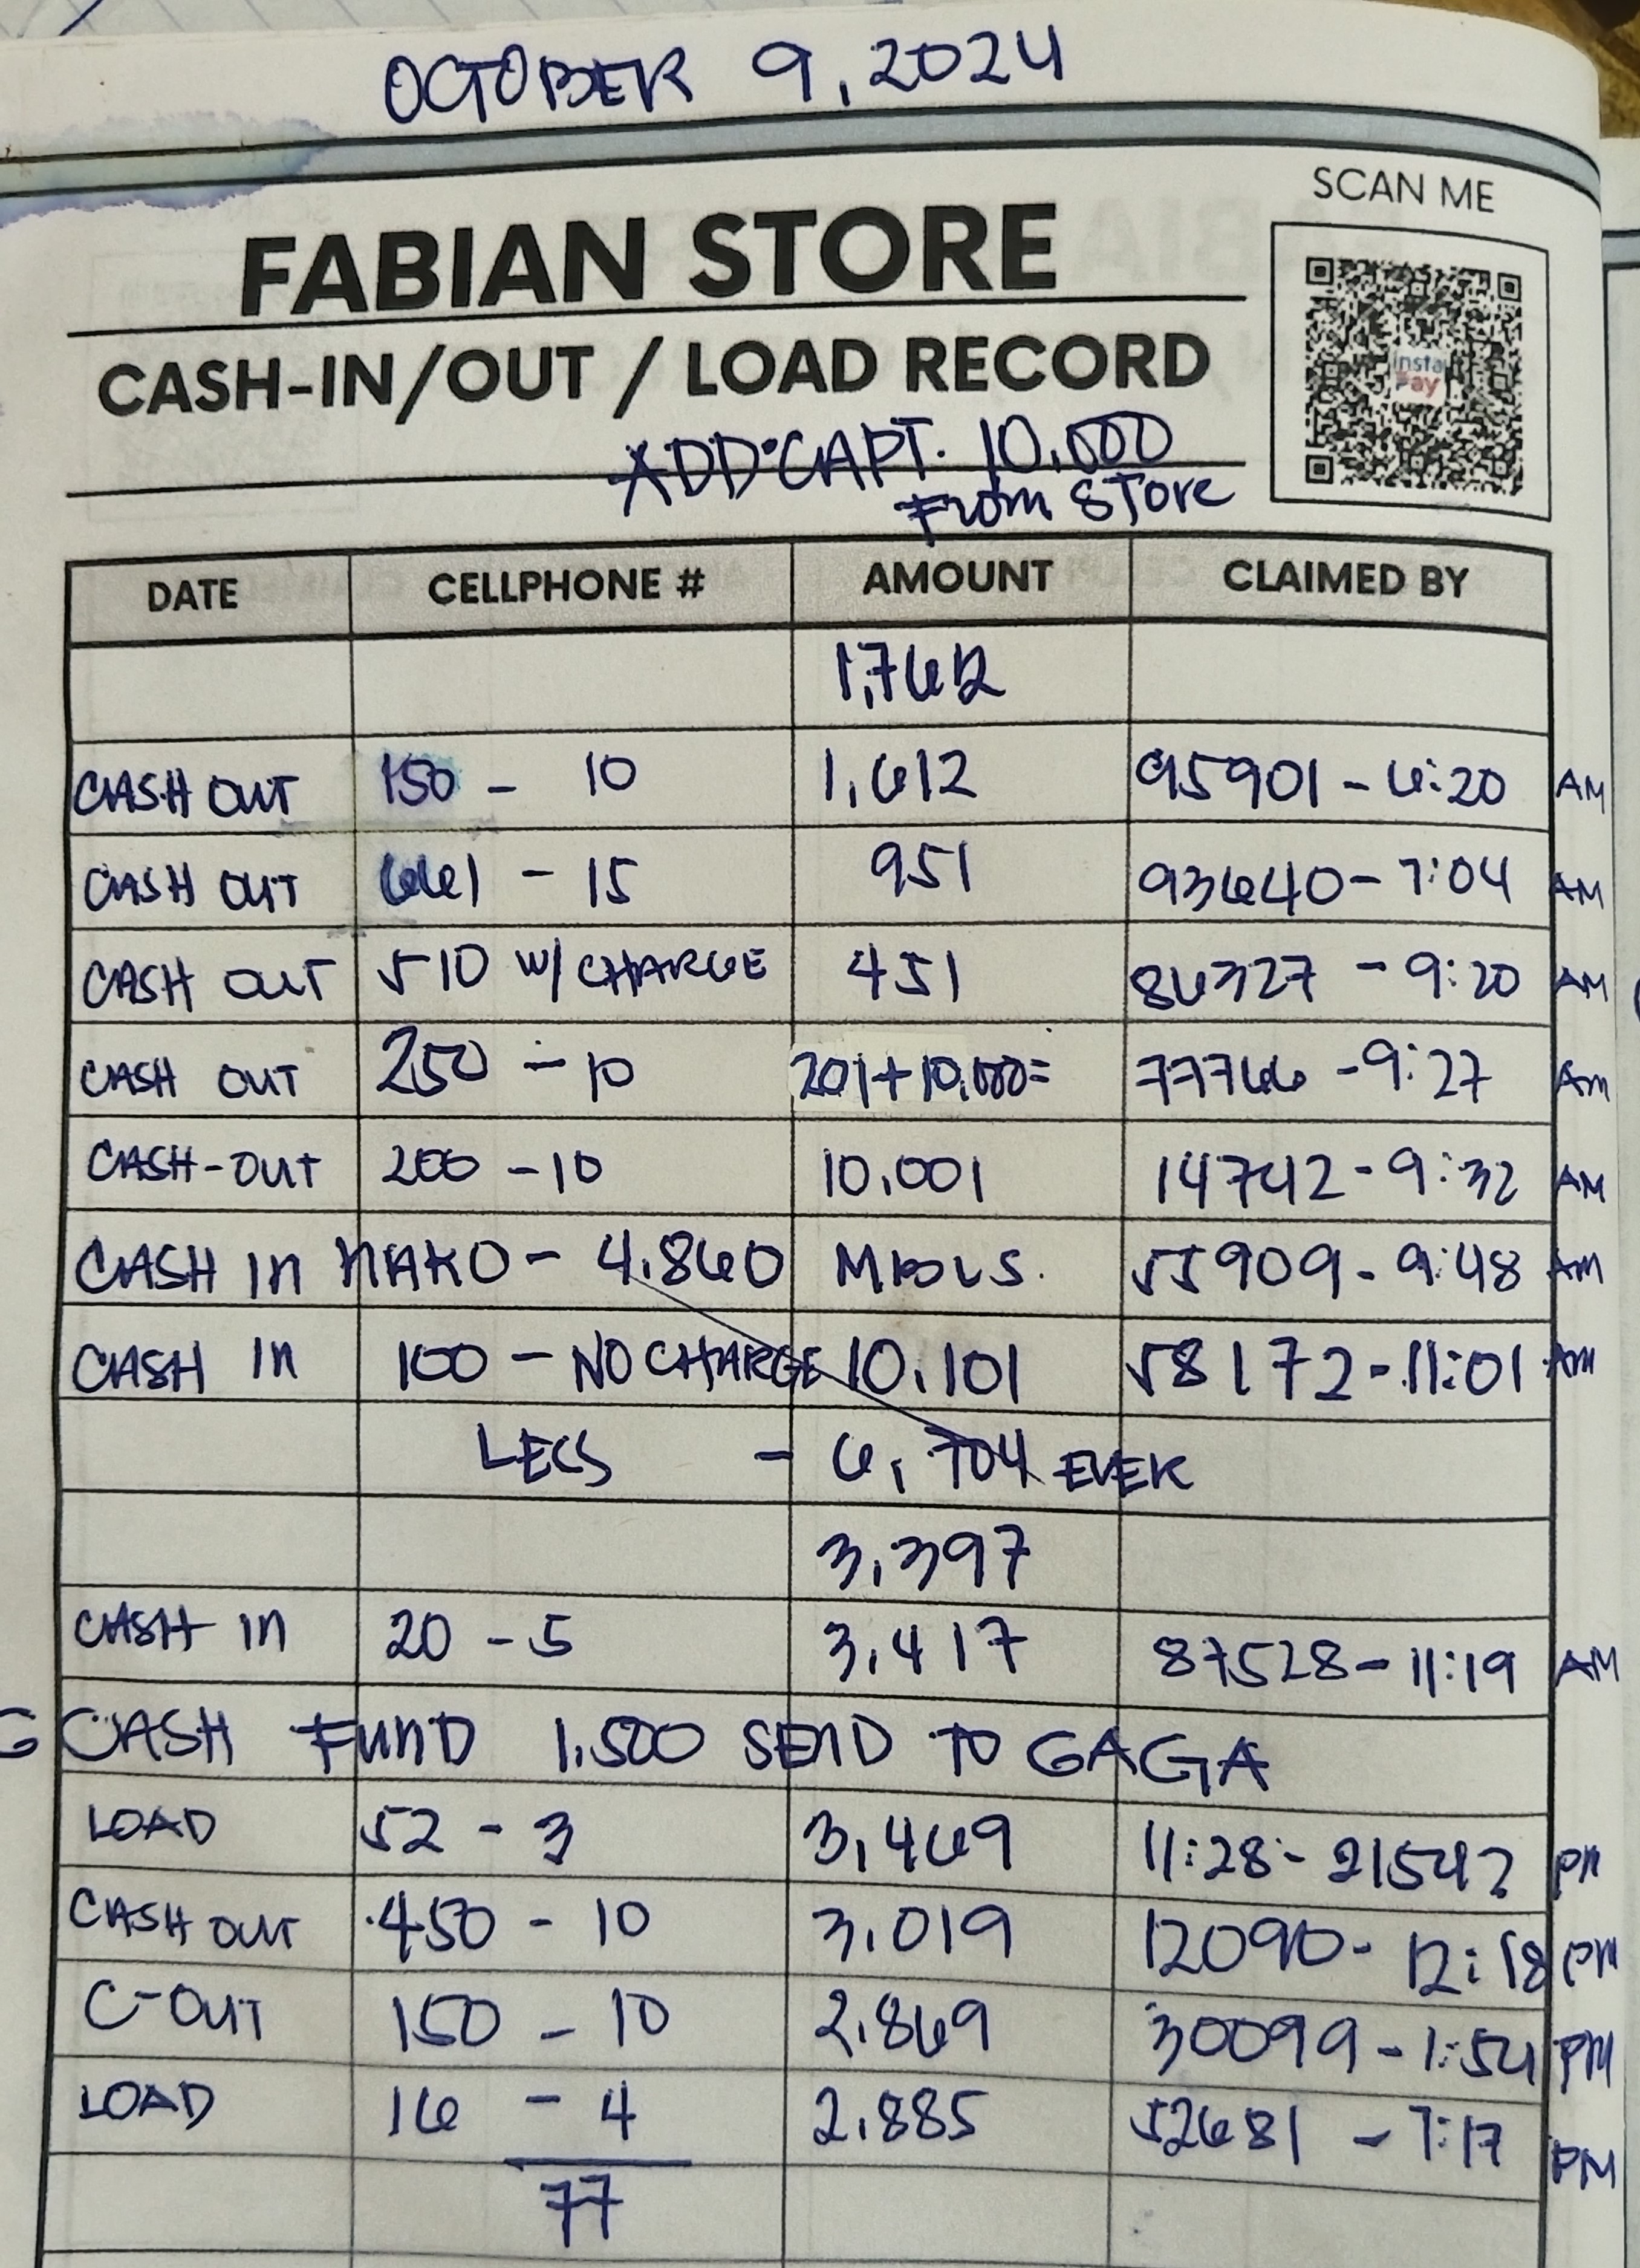 OCTOBER 9, 2024
SCAN ME
FABIAN STORE
insta Pay
CASH-IN/OUT / LOAD RECORD
ADD CAPT. 10,000
From STore
DATE CELLPHONE # AMOUNT CLAIMED BY
1,762
CASH OUT 150 - 10 1,612 95901 - 6:20 AM
CASH OUT 661 - 15 951 93640 - 7:04 AM
CASH OUT 510 W/ CHARGE 451 86327 - 9:20 AM
CASH OUT 250 - 10 201+10,000= 77766 - 9:27 Am
CASH-OUT 200 - 10 10,001 14742 - 9:32 AM
CASH In NAKO - 4,860 55909 - 9:48 AM
CASH In 100 - NO CHARGE 10,101 58172 - 11:01 AM
LESS - 6,704 EVER
3,397
CASH In 20 - 5 3,417 87528 - 11:19 AM
G CASH FUND 1,500 SEND TO GAGA
LOAD 52 - 3 3,469 11:28 - 21542 PM
CASH OUT 450 - 10 3,019 12090 - 12:18 PM
C-OUT 150 - 10 2,869 30099 - 1:54 PM
LOAD 16 - 4 2,885 52681 - 7:17 PM
77